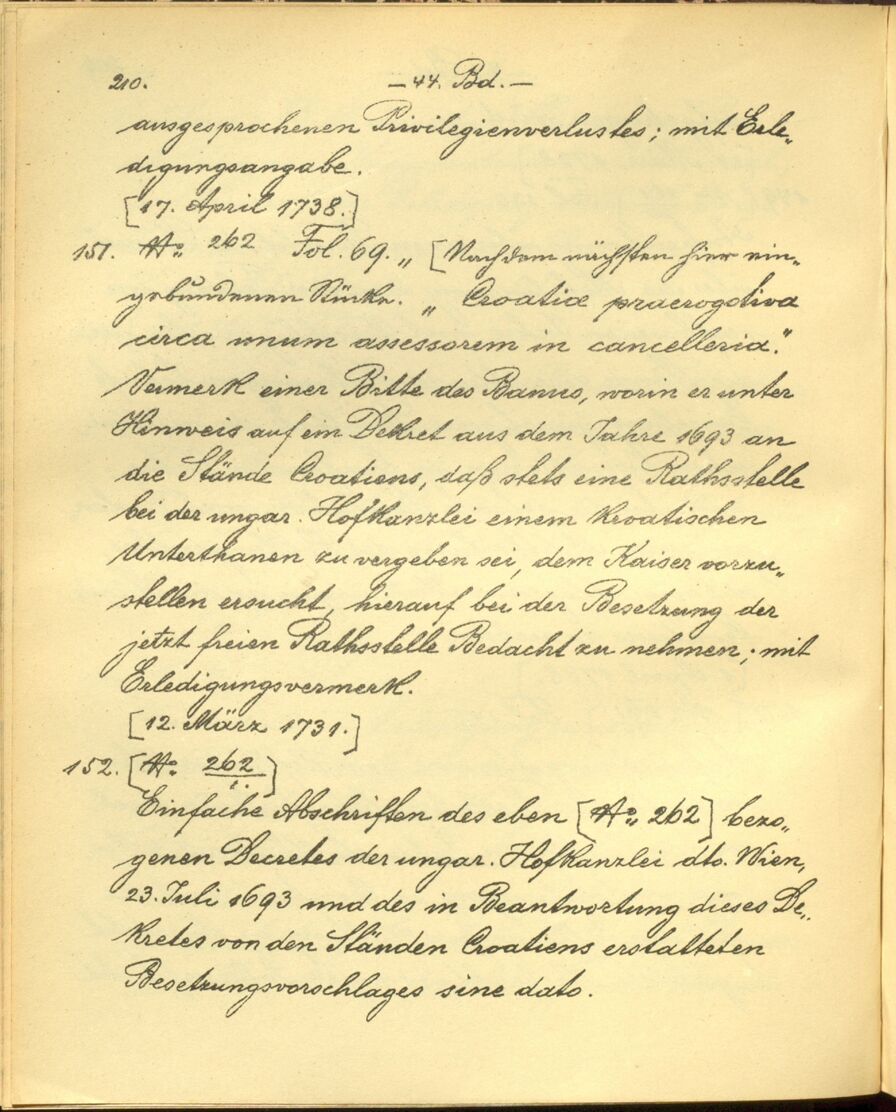 210.
— 44. Bd. —
ausgesprochenen Privilegienverlustes; mit Erle„
digungsangabe.
[17. April 1738.]
151. No: 262 Fol. 69. „ [Nach dem nächsten hier ein„
gebundenen Stücke. „ Croatiæ praerogativa
circa unum assessorem in cancelleria."
Vermerk einer Bitte des Banus, worin er unter
Hinweis auf ein Dekret aus dem Jahre 1693 an
die Stände Croatiens, daß stets eine Rathsstelle
bei der ungar. Hofkanzlei einem kroatischen
Unterthanen zu vergeben sei, dem Kaiser vorzu„
stellen ersucht, hierauf bei der Besetzung der
jetzt freien Rathsstelle Bedacht zu nehmen; mit
Erledigungsvermerk.
[12. März 1731.]
152. [No: 262]
Einfache Abschriften des eben [No: 262] bezo„
genen Decretes der ungar. Hofkanzlei dto. Wien,
23. Juli 1693 und des in Beantwortung dieses De„
kretes von den Ständen Croatiens erstatteten
Besetzungsvorschlages sine dato.